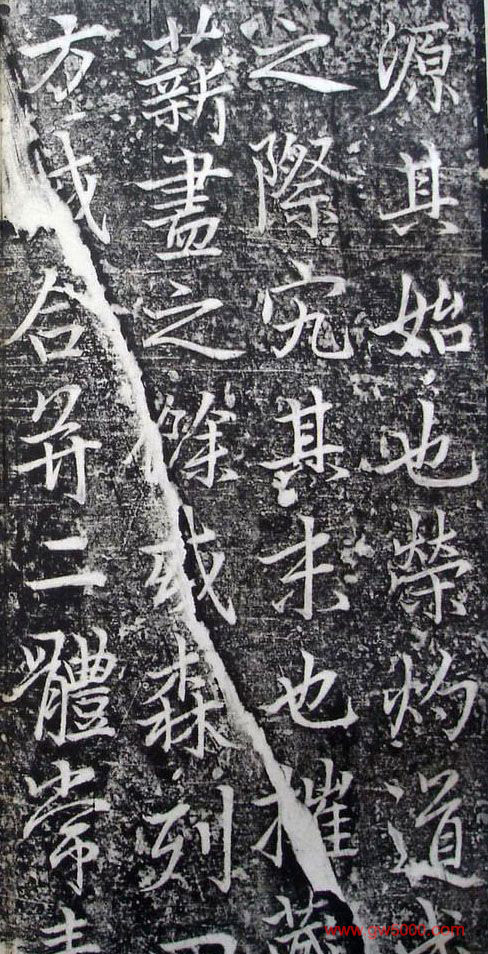 源其始也榮灼道
之際究其末也摧藏
薪盡之餘或森列
方或合并二體常
www.gw5000.com